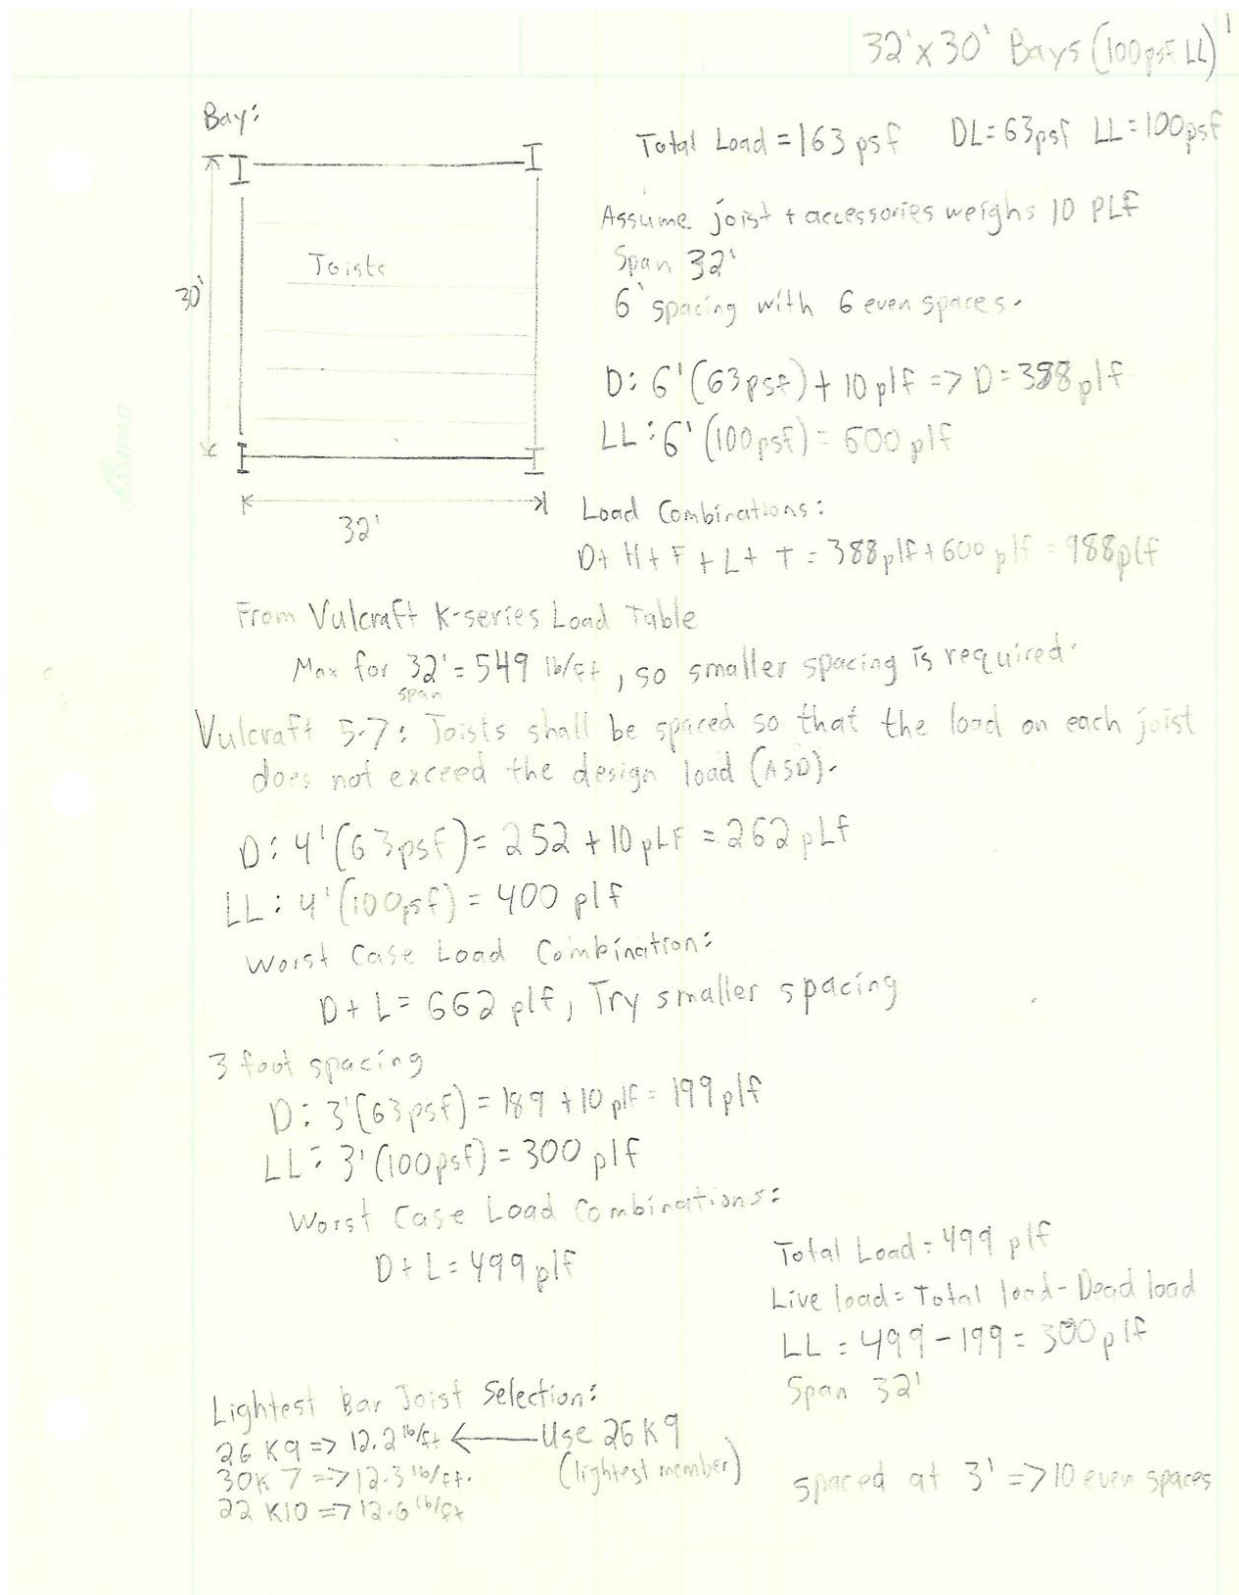 32'x30' Bays (100psf LL) 1
Bay:
Total Load = 163 psf DL=63psf LL=100psf
Assume joist + accessories weighs 10 PLF
Span 32'
6' spacing with 6 even spaces.
Joists
30'
32'
D: 6'(63psf) + 10 plf => D=388 plf
LL: 6'(100psf) = 600 plf
Load Combinations:
D+ H+ F + L+ T = 388 plf + 600 plf = 988plf
From Vulcraft K-series Load Table
Max for 32' = 549 lb/ft, so smaller spacing is required.
span
Vulcraft 5.7: Joists shall be spaced so that the load on each joist
does not exceed the design load (ASD).
D: 4'(63psf) = 252 + 10 pLF = 262 pLf
LL: 4'(100psf) = 400 plf
Worst Case Load Combination:
D+ L= 662 plf, Try smaller spacing
3 foot spacing
D: 3'(63psf) = 189 + 10 plf = 199 plf
LL: 3'(100psf) = 300 plf
Worst Case Load Combinations:
D+ L= 499 plf
Total Load = 499 plf
Live load = Total load - Dead load
LL = 499 - 199 = 300 plf
Span 32'
Lightest Bar Joist Selection:
26 K9 => 12.2 lb/ft <— Use 26K9
30K 7 => 12.3 lb/ft.
(lightest member)
22 K10 => 12.6 lb/ft
spaced at 3' => 10 even spaces